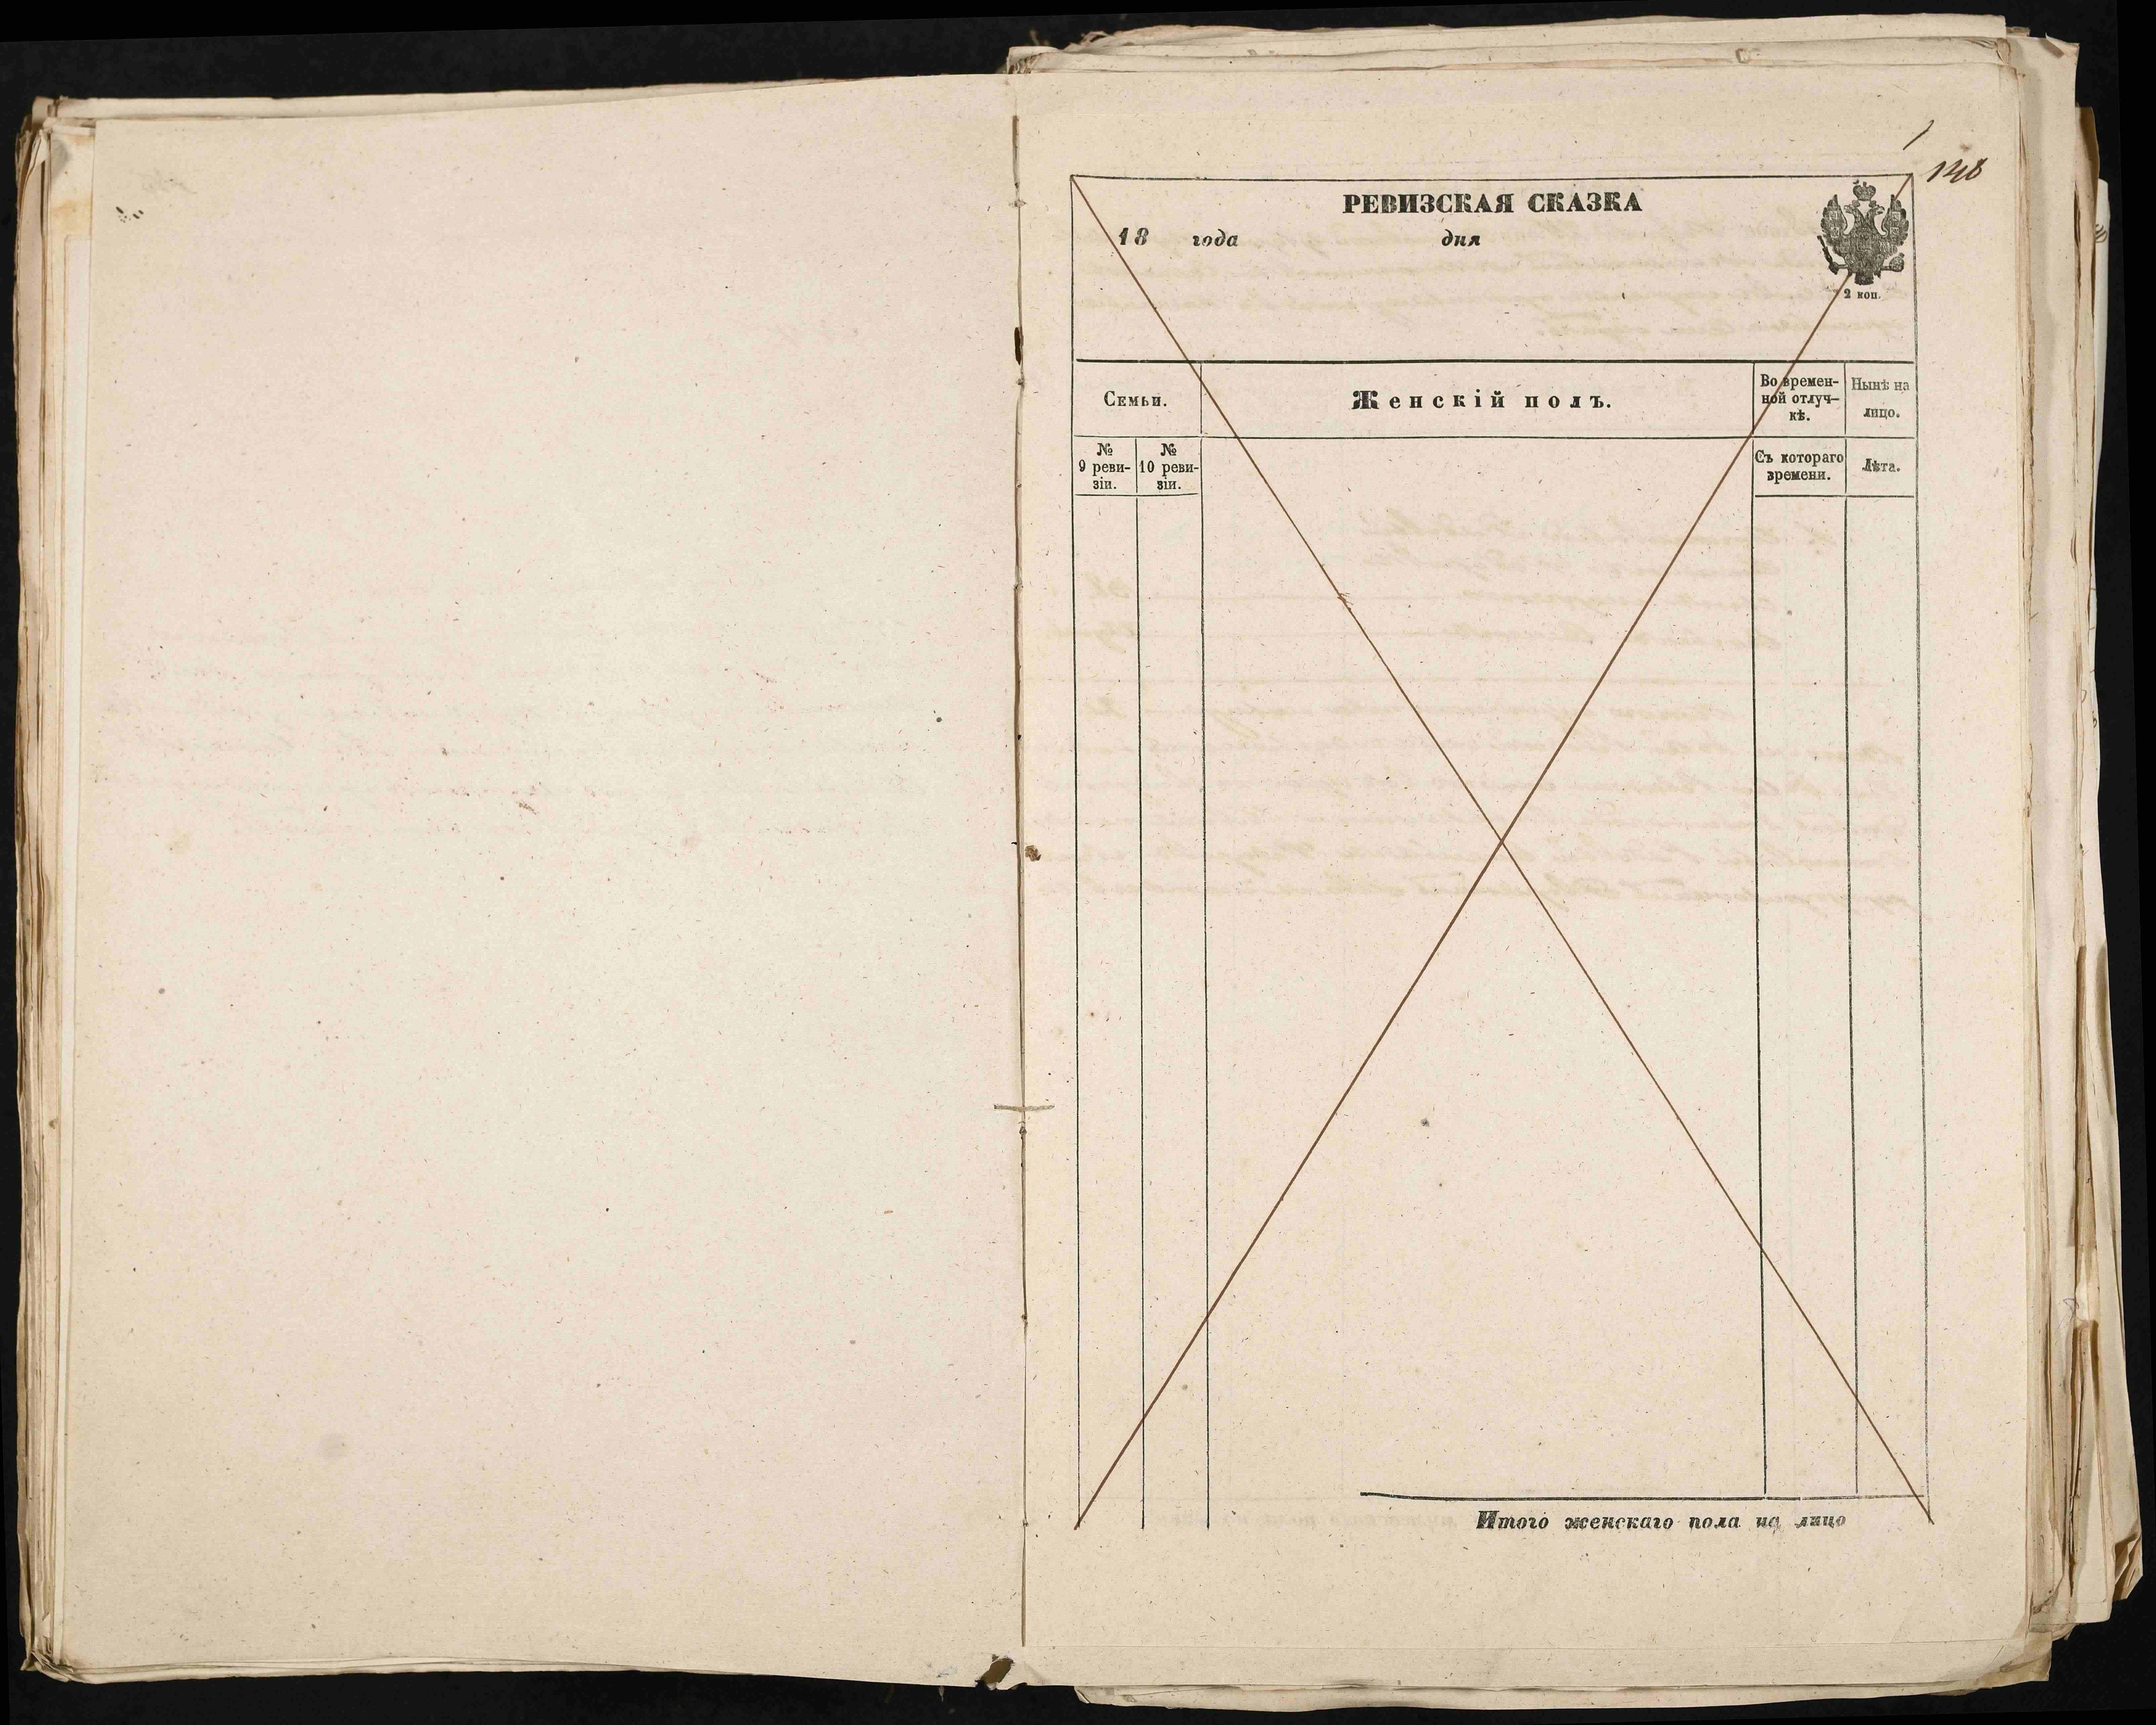 148
РЕВИЗСКАЯ СКАЗКА
18 года дня
2 коп.
Семьи.
Женскій полъ.
Во времен-
ной отлуч-
кѣ.
Нынѣ на
лицо.
№
9 реви-
зіи.
№
10 реви-
зіи.
Съ котораго
времени.
Лѣта.
Итого женскаго пола на лицо